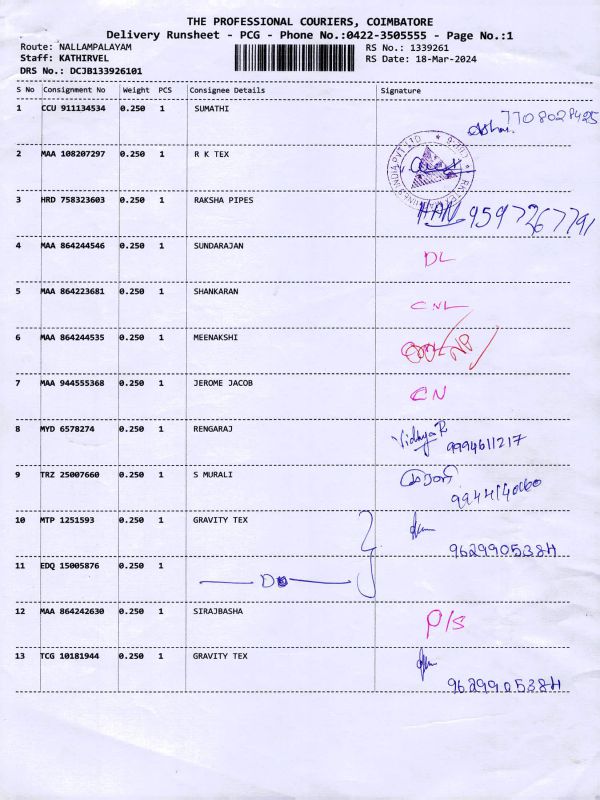 THE PROFESSIONAL COURIERS, COIMBATORE
Delivery Runsheet - PCG - Phone No.:0422-3505555 - Page No.:1
Route: NALLAMPALAYAM RS No.: 1339261
Staff: KATHIRVEL RS Date: 18-Mar-2024
DRS No.: DCJB133926101
S No Consignment No Weight PCS Consignee Details Signature
1 CCU 911134534 0.250 1 SUMATHI
2 MAA 108207297 0.250 1 R K TEX
3 HRD 758323603 0.250 1 RAKSHA PIPES 9597267791
4 MAA 864244546 0.250 1 SUNDARAJAN DL
5 MAA 864223681 0.250 1 SHANKARAN CNL
6 MAA 864244535 0.250 1 MEENAKSHI
7 MAA 944555368 0.250 1 JEROME JACOB CN
8 MYD 6578274 0.250 1 RENGARAJ Vidhya R
9994611217
9 TRZ 25007660 0.250 1 S MURALI
10 MTP 1251593 0.250 1 GRAVITY TEX
9629905384
11 EDQ 15005876 0.250 1
12 MAA 864242630 0.250 1 SIRAJBASHA P/S
13 TCG 10181944 0.250 1 GRAVITY TEX
9629905384